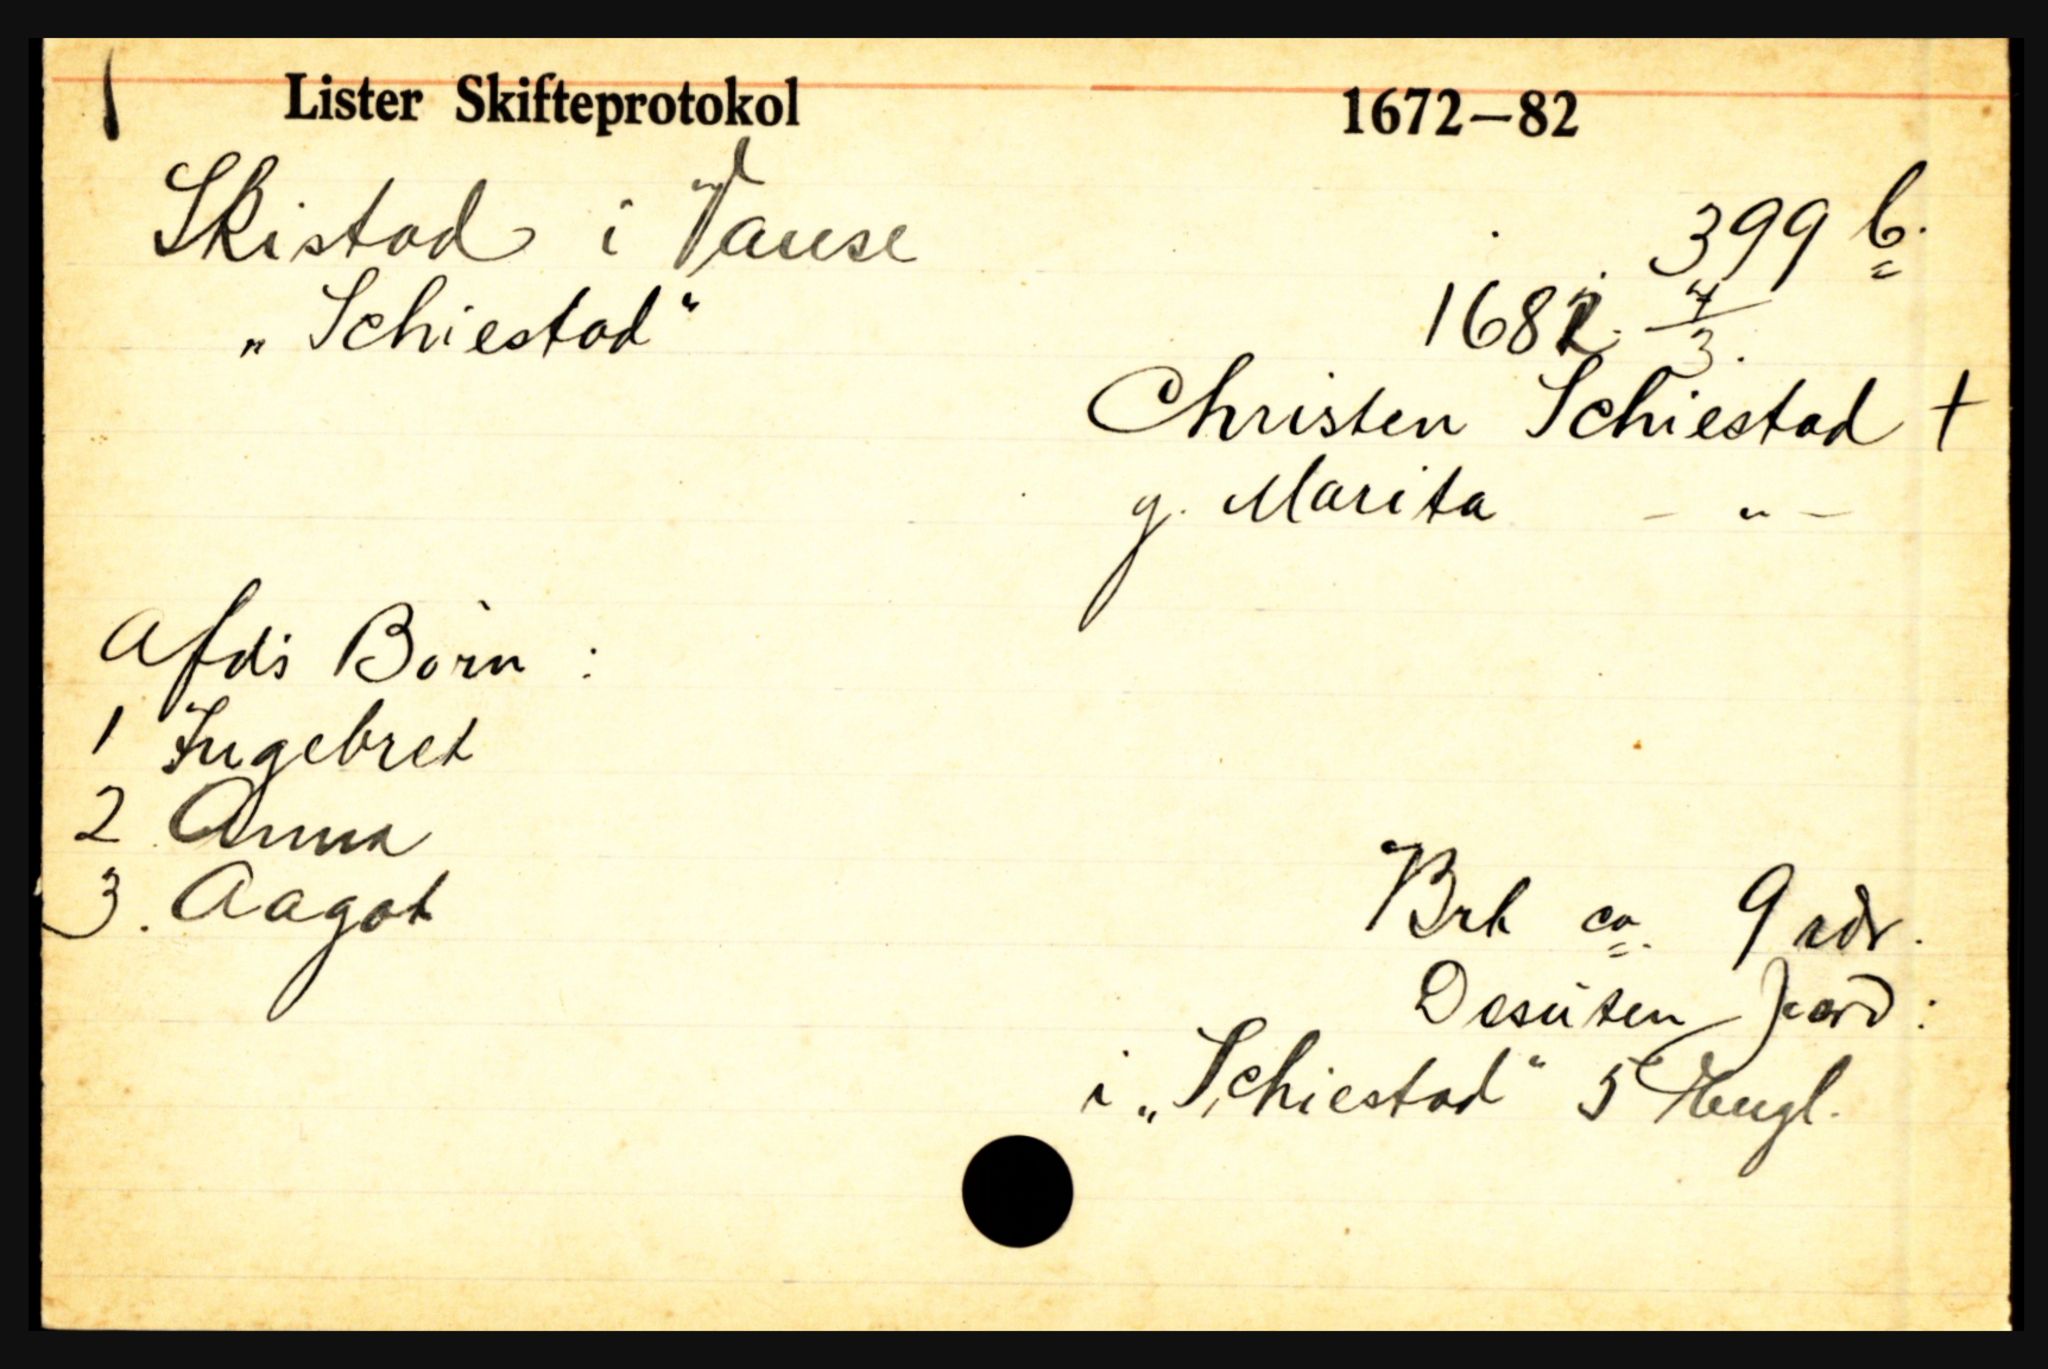 Lister Skifteprotokol 1672–82
Skistad i Vanse
399 b.
"Schiestad"
1682 4/3.
Christen Schiestad +
g. Marita – " –
Afdˢ Børn :
1 Ingebret
2 Anna
3. Aagot
Brt ca. 9 rdr.
Desuten jord :
i "Schiestad" 5 Engl.